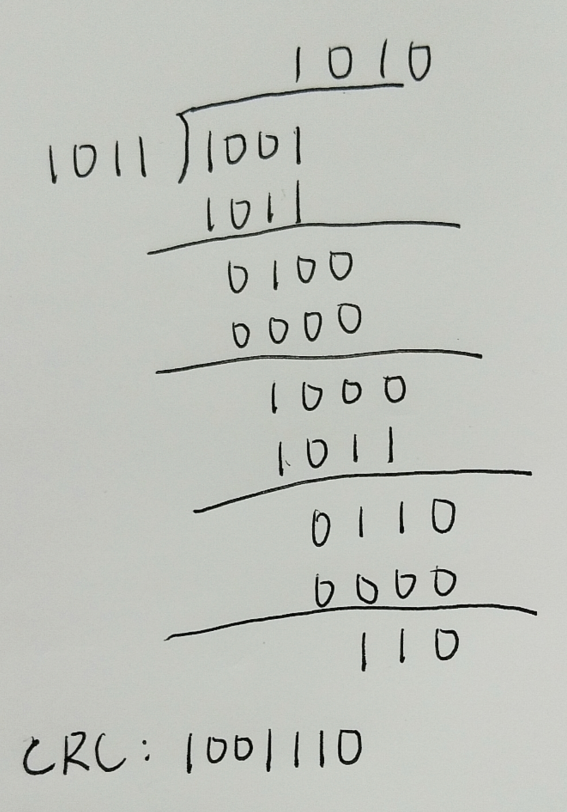 1010
1011)1001
1011
0100
0000
1000
1011
0110
0000
110
CRC: 1001110